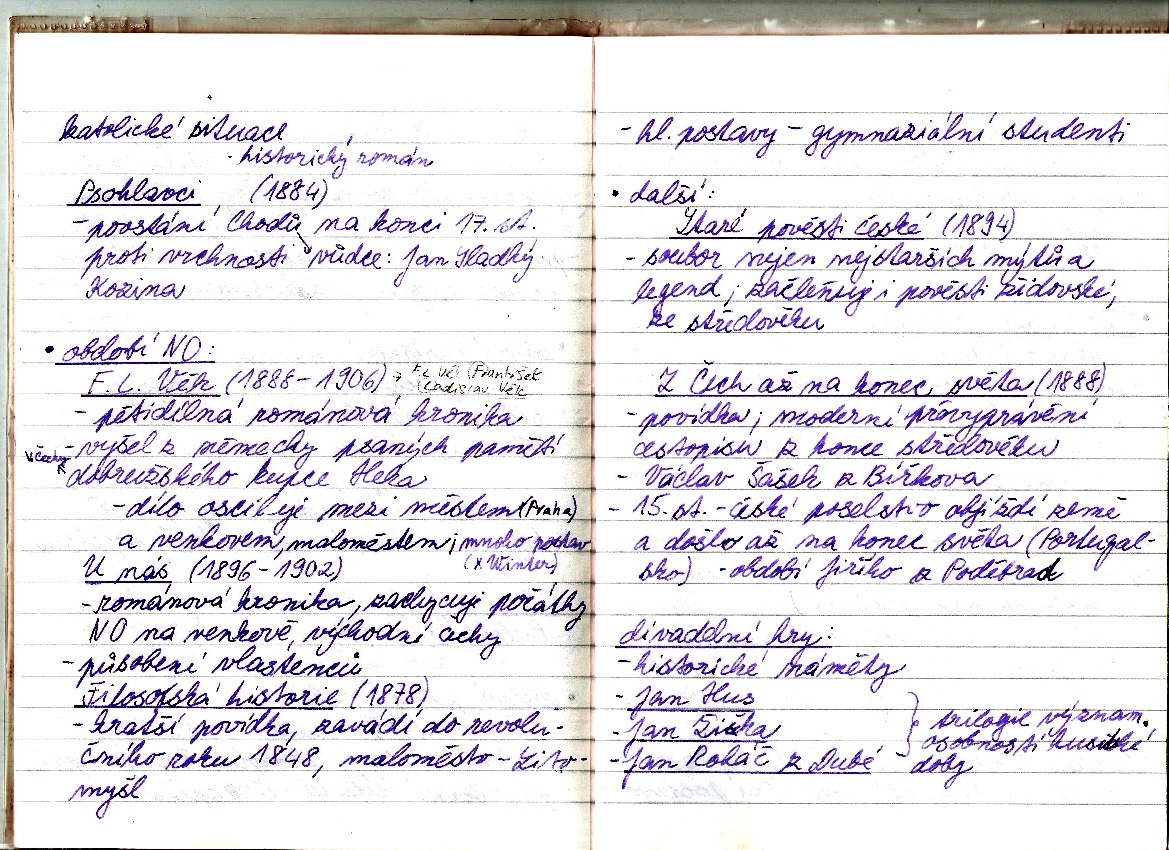 katolické situace
- historický román
Psohlavci (1884)
- povstání Chodů na konci 17. st.
proti vrchnosti vůdce: Jan Sladký
Kozina
• období NO:
F. L. Věk (1888-1906) → F. L. Věk (František
Ladislav Věk
- pětidílná románová kronika
- vyšel z německy psaných pamětí
v Čechy
dobrušského kupce Heka
- dílo osciluje mezi městem (Praha)
a venkovem, maloměstem; mnoho postav
(x Winter)
U nás (1896-1902)
- románová kronika, zachycuje počátky
NO na venkově, východní čechy
- působení vlastenců
Filosofská historie (1878)
- kratší povídka, zavádí do revolu-
čního roku 1848, maloměsto - Lito-
myšl
- hl. postavy - gymnaziální studenti
• další:
Staré pověsti české (1894)
- soubor nejen nejstarších mýtů a
legend; začleňuje i pověsti židovské,
ze středověku
Z Čech až na konec světa (1888)
- povídka; moderní převyprávění
cestopisu z konce středověku
- Václav Šašek z Bířkova
- 15. st. - české poselstvo objíždí země
a došlo až na konec světa (Portugal-
sko) - období Jiřího z Poděbrad
divadelní hry:
- historické náměty
- Jan Hus
- Jan Žižka
- Jan Roháč z Dubé
trilogie význam.
osobností husitské
doby